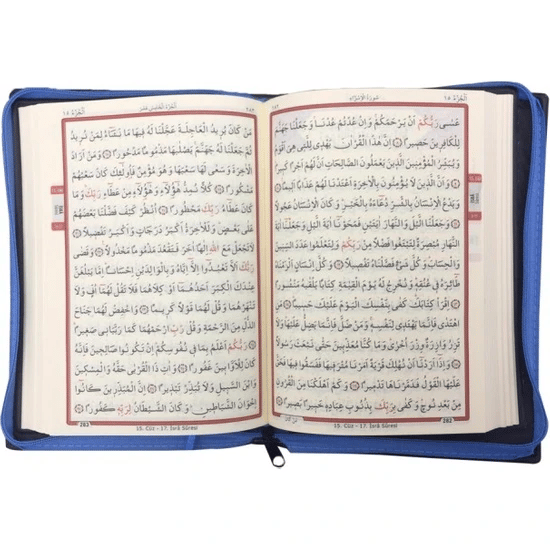 سُورَةُ الْإِسْرَاءِ
اَلْجُزْءُ ١٥
عَسٰى رَبُّكُمْ اَنْ يَرْحَمَكُمْ وَاِنْ عُدْتُمْ عُدْنَا وَجَعَلْنَا جَهَنَّمَ
لِلْكَافِرِينَ حَصِيرًا ۝ اِنَّ هٰذَا الْقُرْاٰنَ يَهْدِي لِلَّتِي هِيَ اَقْوَمُ
وَيُبَشِّرُ الْمُؤْمِنِينَ الَّذِينَ يَعْمَلُونَ الصَّالِحَاتِ اَنَّ لَهُمْ اَجْرًا
كَبِيرًا ۝ وَاَنَّ الَّذِينَ لَا يُؤْمِنُونَ بِالْاٰخِرَةِ اَعْتَدْنَا لَهُمْ عَذَابًا
اَلِيمًا ۝ وَيَدْعُ الْاِنْسَانُ بِالشَّرِّ دُعَاءَهُ بِالْخَيْرِ وَكَانَ الْاِنْسَانُ عَجُولًا
۝ وَجَعَلْنَا الَّيْلَ وَالنَّهَارَ اٰيَتَيْنِ فَمَحَوْنَا اٰيَةَ الَّيْلِ وَجَعَلْنَا اٰيَةَ
النَّهَارِ مُبْصِرَةً لِتَبْتَغُوا فَضْلًا مِنْ رَبِّكُمْ وَلِتَعْلَمُوا عَدَدَ السِّنِينَ
وَالْحِسَابَ وَكُلَّ شَيْءٍ فَصَّلْنَاهُ تَفْصِيلًا ۝ وَكُلَّ اِنْسَانٍ اَلْزَمْنَاهُ
طَائِرَهُ فِي عُنُقِهِ وَنُخْرِجُ لَهُ يَوْمَ الْقِيٰمَةِ كِتَابًا يَلْقٰيهُ مَنْشُورًا
۝ اِقْرَأْ كِتَابَكَ كَفٰى بِنَفْسِكَ الْيَوْمَ عَلَيْكَ حَسِيبًا ۝ مَنِ
اهْتَدٰى فَاِنَّمَا يَهْتَدِي لِنَفْسِهِ وَمَنْ ضَلَّ فَاِنَّمَا يَضِلُّ عَلَيْهَا وَلَا
تَزِرُ وَازِرَةٌ وِزْرَ اُخْرٰى وَمَا كُنَّا مُعَذِّبِينَ حَتّٰى نَبْعَثَ رَسُولًا
۝ وَاِذَا اَرَدْنَا اَنْ نُهْلِكَ قَرْيَةً اَمَرْنَا مُتْرَفِيهَا فَفَسَقُوا فِيهَا فَحَقَّ
عَلَيْهَا الْقَوْلُ فَدَمَّرْنَاهَا تَدْمِيرًا ۝ وَكَمْ اَهْلَكْنَا مِنَ الْقُرُونِ
مِنْ بَعْدِ نُوحٍ وَكَفٰى بِرَبِّكَ بِذُنُوبِ عِبَادِهِ خَبِيرًا بَصِيرًا ۝
282
15. Cüz - 17. İsrâ Sûresi
اَلْجُزْءُ الْخَامِسُ عَشَرَ
اَلْجُزْءُ ١٥
مَنْ كَانَ يُرِيدُ الْعَاجِلَةَ عَجَّلْنَا لَهُ فِيهَا مَا نَشَاءُ لِمَنْ نُرِيدُ
ثُمَّ جَعَلْنَا لَهُ جَهَنَّمَ يَصْلٰيهَا مَذْمُومًا مَدْحُورًا ۝ وَمَنْ اَرَادَ
الْاٰخِرَةَ وَسَعٰى لَهَا سَعْيَهَا وَهُوَ مُؤْمِنٌ فَاُولٰئِكَ كَانَ سَعْيُهُمْ
مَشْكُورًا ۝ كُلًّا نُمِدُّ هٰؤُلَاءِ وَهٰؤُلَاءِ مِنْ عَطَاءِ رَبِّكَ وَمَا
كَانَ عَطَاءُ رَبِّكَ مَحْظُورًا ۝ اُنْظُرْ كَيْفَ فَضَّلْنَا بَعْضَهُمْ
عَلٰى بَعْضٍ وَلَلْاٰخِرَةُ اَكْبَرُ دَرَجَاتٍ وَاَكْبَرُ تَفْضِيلًا ۝
لَا تَجْعَلْ مَعَ اللّٰهِ اِلٰهًا اٰخَرَ فَتَقْعُدَ مَذْمُومًا مَخْذُولًا ۝ وَقَضٰى
رَبُّكَ اَلَّا تَعْبُدُوا اِلَّا اِيَّاهُ وَبِالْوَالِدَيْنِ اِحْسَانًا اِمَّا يَبْلُغَنَّ
عِنْدَكَ الْكِبَرَ اَحَدُهُمَا اَوْ كِلَاهُمَا فَلَا تَقُلْ لَهُمَا اُفٍّ وَلَا
تَنْهَرْهُمَا وَقُلْ لَهُمَا قَوْلًا كَرِيمًا ۝ وَاخْفِضْ لَهُمَا جَنَاحَ
الذُّلِّ مِنَ الرَّحْمَةِ وَقُلْ رَبِّ ارْحَمْهُمَا كَمَا رَبَّيَانِي صَغِيرًا ۝
رَبُّكُمْ اَعْلَمُ بِمَا فِي نُفُوسِكُمْ اِنْ تَكُونُوا صَالِحِينَ فَاِنَّهُ
كَانَ لِلْاَوَّابِينَ غَفُورًا ۝ وَاٰتِ ذَا الْقُرْبٰى حَقَّهُ وَالْمِسْكِينَ
وَابْنَ السَّبِيلِ وَلَا تُبَذِّرْ تَبْذِيرًا ۝ اِنَّ الْمُبَذِّرِينَ كَانُوا
اِخْوَانَ الشَّيَاطِينِ وَكَانَ الشَّيْطَانُ لِرَبِّهِ كَفُورًا ۝
283
15. Cüz - 17. İsrâ Sûresi